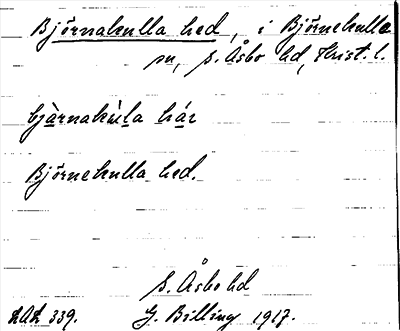 Björnakulla hed, i Björnekulla
sn, S. Åsbo hd, Krist. l.
bjàrnakúla hár
Björnekulla hed.
S. Åsbo hd
LAL 339. G. Billing 1917.